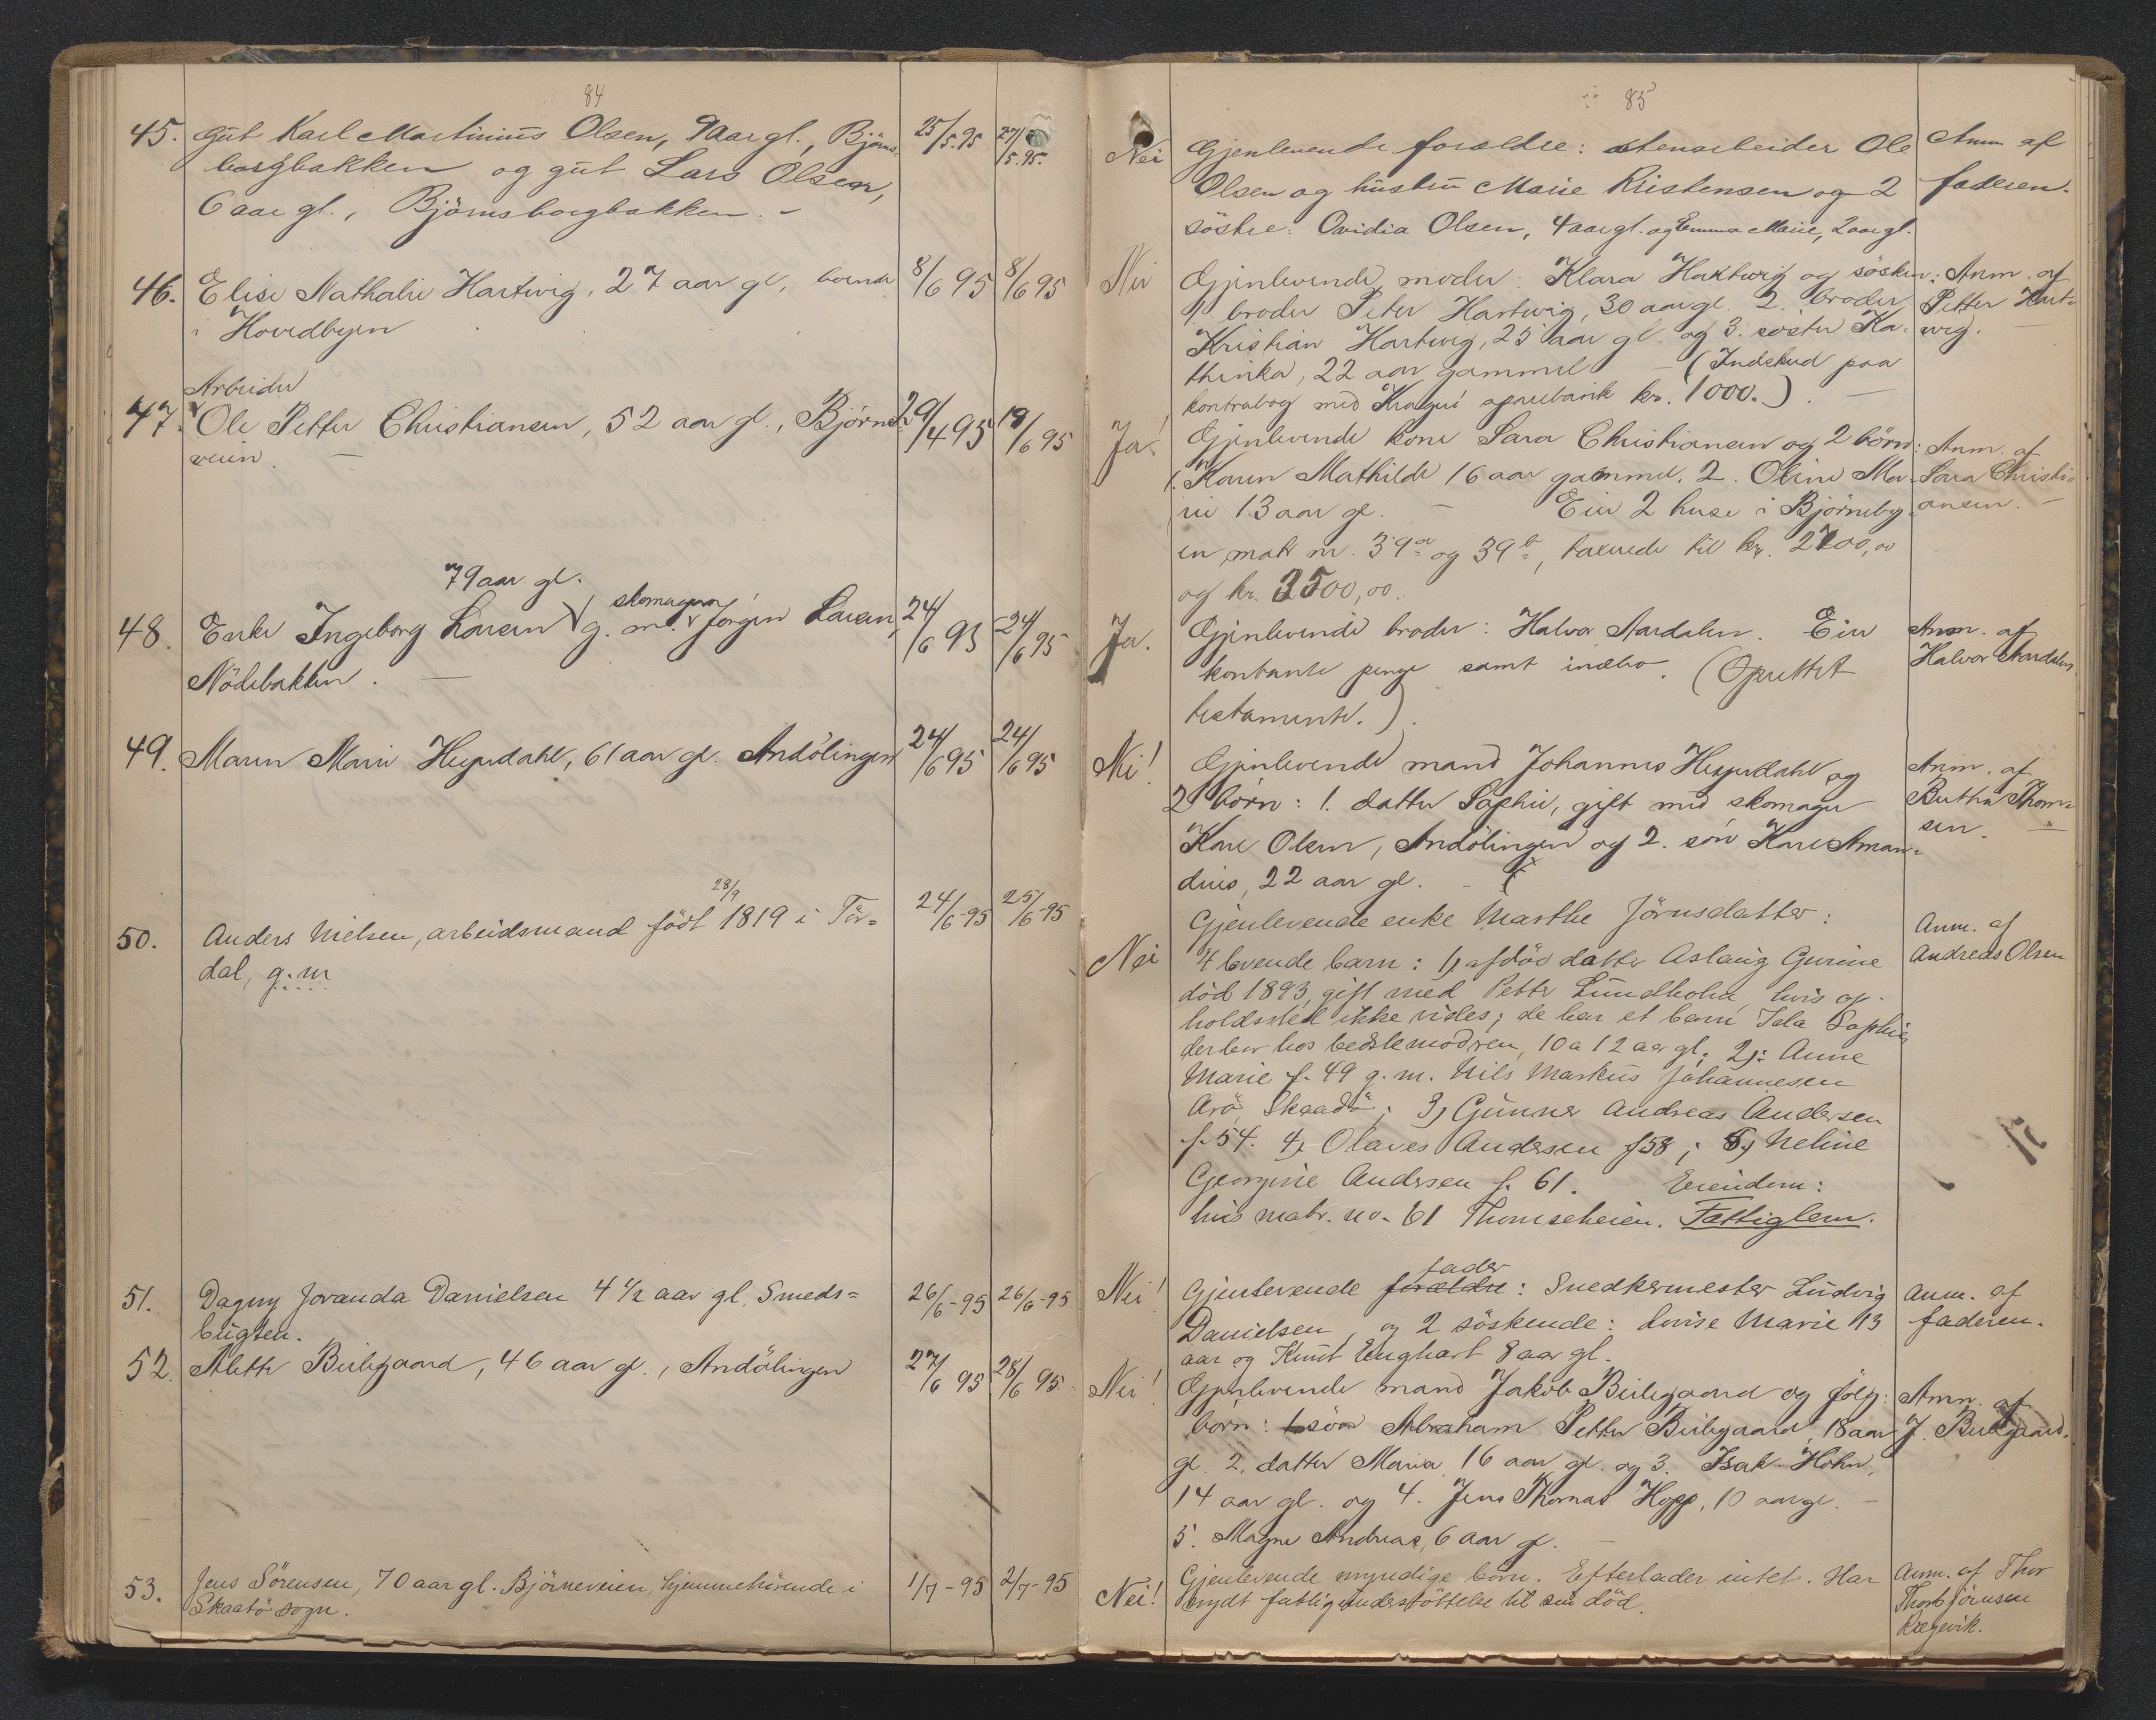 84
45. Gut Karl Martinius Olsen, 9 aar gl., Björns-
borgbakken og gut Lars Olsen,
6 aar gl., Björnsborgbakken. -
25/5.95 27/5.95.
46. Elise Nathalie Hartwig, 27 aar gl, boende
i Hovedbyen
8/6 95 8/6 95
Arbeider
47. Ole Petter Christiansen, 52 aar gl., Bjørne-
veien. -
29/4 95 19/6 95
79 aar gl.
skomager
48. Enke Ingeborg Larsen g. m. Jörgen Larsen,
Nödebakken. -
24/6 95 24/6 95
49. Maren Marie Heyerdahl, 61 aar gl. Andölingen
24/6 95 24/6 95
28/9
50. Anders Nielsen, arbeidsmand födt 1819 i Tör=
dal, g. m
24/6-95 25/6-95
51. Dagny Jovanda Danielsen 4 1/2 aar gl. Smeds=
bugten.
26/6-95 26/6-95
52. Alette Beilegaard, 46 aar gl., Andölingen
27/6 95 28/6 95
53. Jens Sörensen, 70 aar gl. Björneveien, hjemmehörende i
Skaatö sogn.
1/7-95 2/7-95
85
Nei Gjenlevende forældre: stenarbeider Ole
Olsen og hustru Marie Kristensen og 2
söstre: Ovidia Olsen, 4 aar gl. og Emma Marie, 2 aar gl.
Anm af
faderen.
Nei Gjenlevende moder: Klara Hartwig og sösken:
1. broder Peter Hartwig, 30 aar gl. 2. broder
Kristian Hartwig, 25 aar gl. og 3. söster Ka-
thinka, 22 aar gammel - (Indskud paa
kontrabog med Kragerö sparebank kr. 1000.). -
Anm. af
Petter Hart-
wig. -
Ja! Gjenlevende kone Sara Christiansen og 2 börn:
1. Karen Mathilde 16 aar gammel. 2. Oline Ma-
rie 13 aar gl. - Eier 2 huse i Björneby-
en, matr nr. 39a og 39b, taxerede til kr. 2700,00
og kr. 3500,00.
Anm. af
Sara Christi-
ansen. -
Ja. Gjenlevende broder: Halvor Aardalen. Eier
kontante penge samt indbo. (Oprettet
testamente.).
Anm. af
Halvor Aardalen.
Nei! Gjenlevende mand Johannes Heyerdahl og
2 börn: 1. datter Sophie, gift med skomager
Karl Olsen, Andölingen og 2. sön Karl Aman-
dius, 22 aar gl. -
Anm. af
Berthe Thom-
sen. -
Nei Gjenlevende enke Marthe Jörnsdatter:
4 levende barn: 1, afdöd datter Aslaug Gurine
död 1893, gift med Petter Lundholm, hvis op-
holdssted ikke vides; de har et barn Ida Sophie,
der bor hos bedstemodren, 10 a 12 aar gl; 2,: Anne
Marie f. 49 g. m. Nils Markus Johannesen
Arö, Skaadö; 3, Gunner Andreas Andersen
f. 54. 4, Olaves Andersen f 58; 5, Neline
Georgine Andersen f. 61. Eiendom:
hus matr. no. 61 Thomseheien. Fattiglem.
Anm. af
Andreas Olsen
fader
Nei! Gjenlevende forældre: Snedkermester Ludvig
Danielsen, og 2 söskende: Lovise Marie 13
aar og Knut Enghart 8 aar gl.
Anm. af
faderen.
Nei! Gjenlevende mand Jakob Beilegaard og følg:
börn: 1 sön Abraham Petter Beilegaard, 18 aar
gl. 2. datter Maria 16 aar gl. og 3. Isak Höhn,
14 aar gl. og 4. Jens Thomas Hopp, 10 aar gl. -
5. Magne Andreas, 6 aar gl. -
Anm. af
J. Beilegaard.
Nei! Gjenlevende myndige börn. Efterlader intet. Har
nydt fattigunderstöttelse til sin död.
Anm. af Thor
Thorbjörnsen